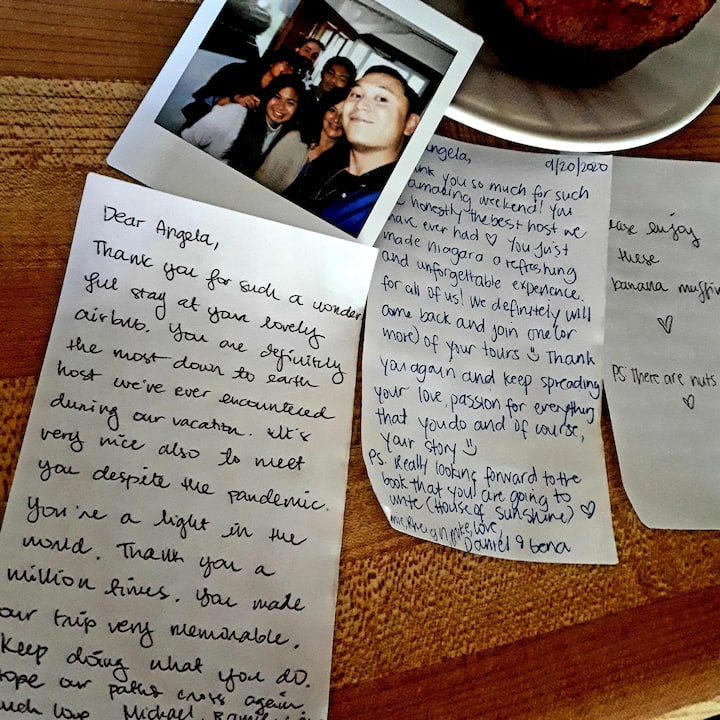 Dear Angela,
Thank you for such a wonder
ful stay at your lovely
airbnb. You are definitely
the most down to earth
host we've ever encountered
during our vacation. It's
very nice also to meet
you despite the pandemic.
You're a light in the
world. Thank you a
million times. You made
our trip very memorable.
Keep doing what you do.
Hope our paths cross again.
Much love Michael,
Angela, 9/20/2020
Thank you so much for such
amazing weekend! You
honestly the best host we
have ever had ♡ You just
made niagara a refreshing
and unforgettable experience.
for all of us! We definitely will
come back and join one (or
more) of your tours Thank
you again and keep spreading
your love, passion for everything
that you do and of course,
your story
PS. Really looking forward to the
book that you are going to
write (House of sunshine) ♡
love,
Daniel & Gena
ease enjoy
these
banana muffin
♡
PS There are nuts
♡